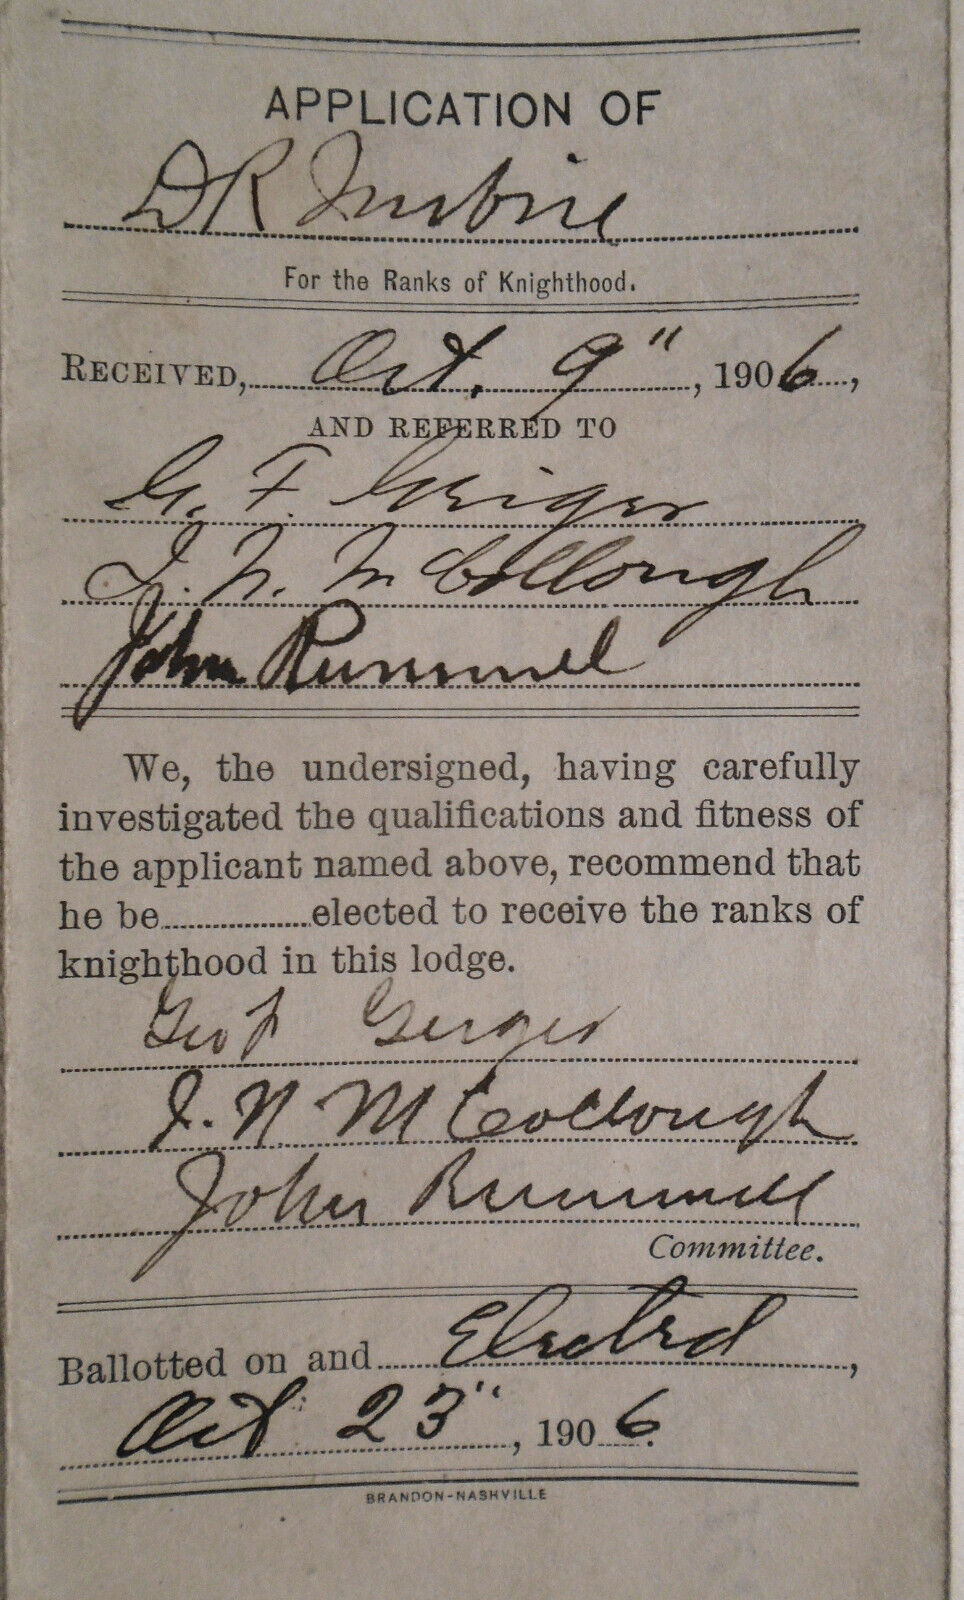 APPLICATION OF
D R
For the Ranks of Knighthood.
RECEIVED, Oct. 9", 1906,
AND REFERRED TO
G. F. Geiger
J. N. McCollough
John Rummel
We, the undersigned, having carefully
investigated the qualifications and fitness of
the applicant named above, recommend that
he be elected to receive the ranks of
knighthood in this lodge.
Geo F Geiger
J. N. McCollough
John Rummel
Committee.
Ballotted on and Elected,
Oct 23", 1906.
BRANDON-NASHVILLE